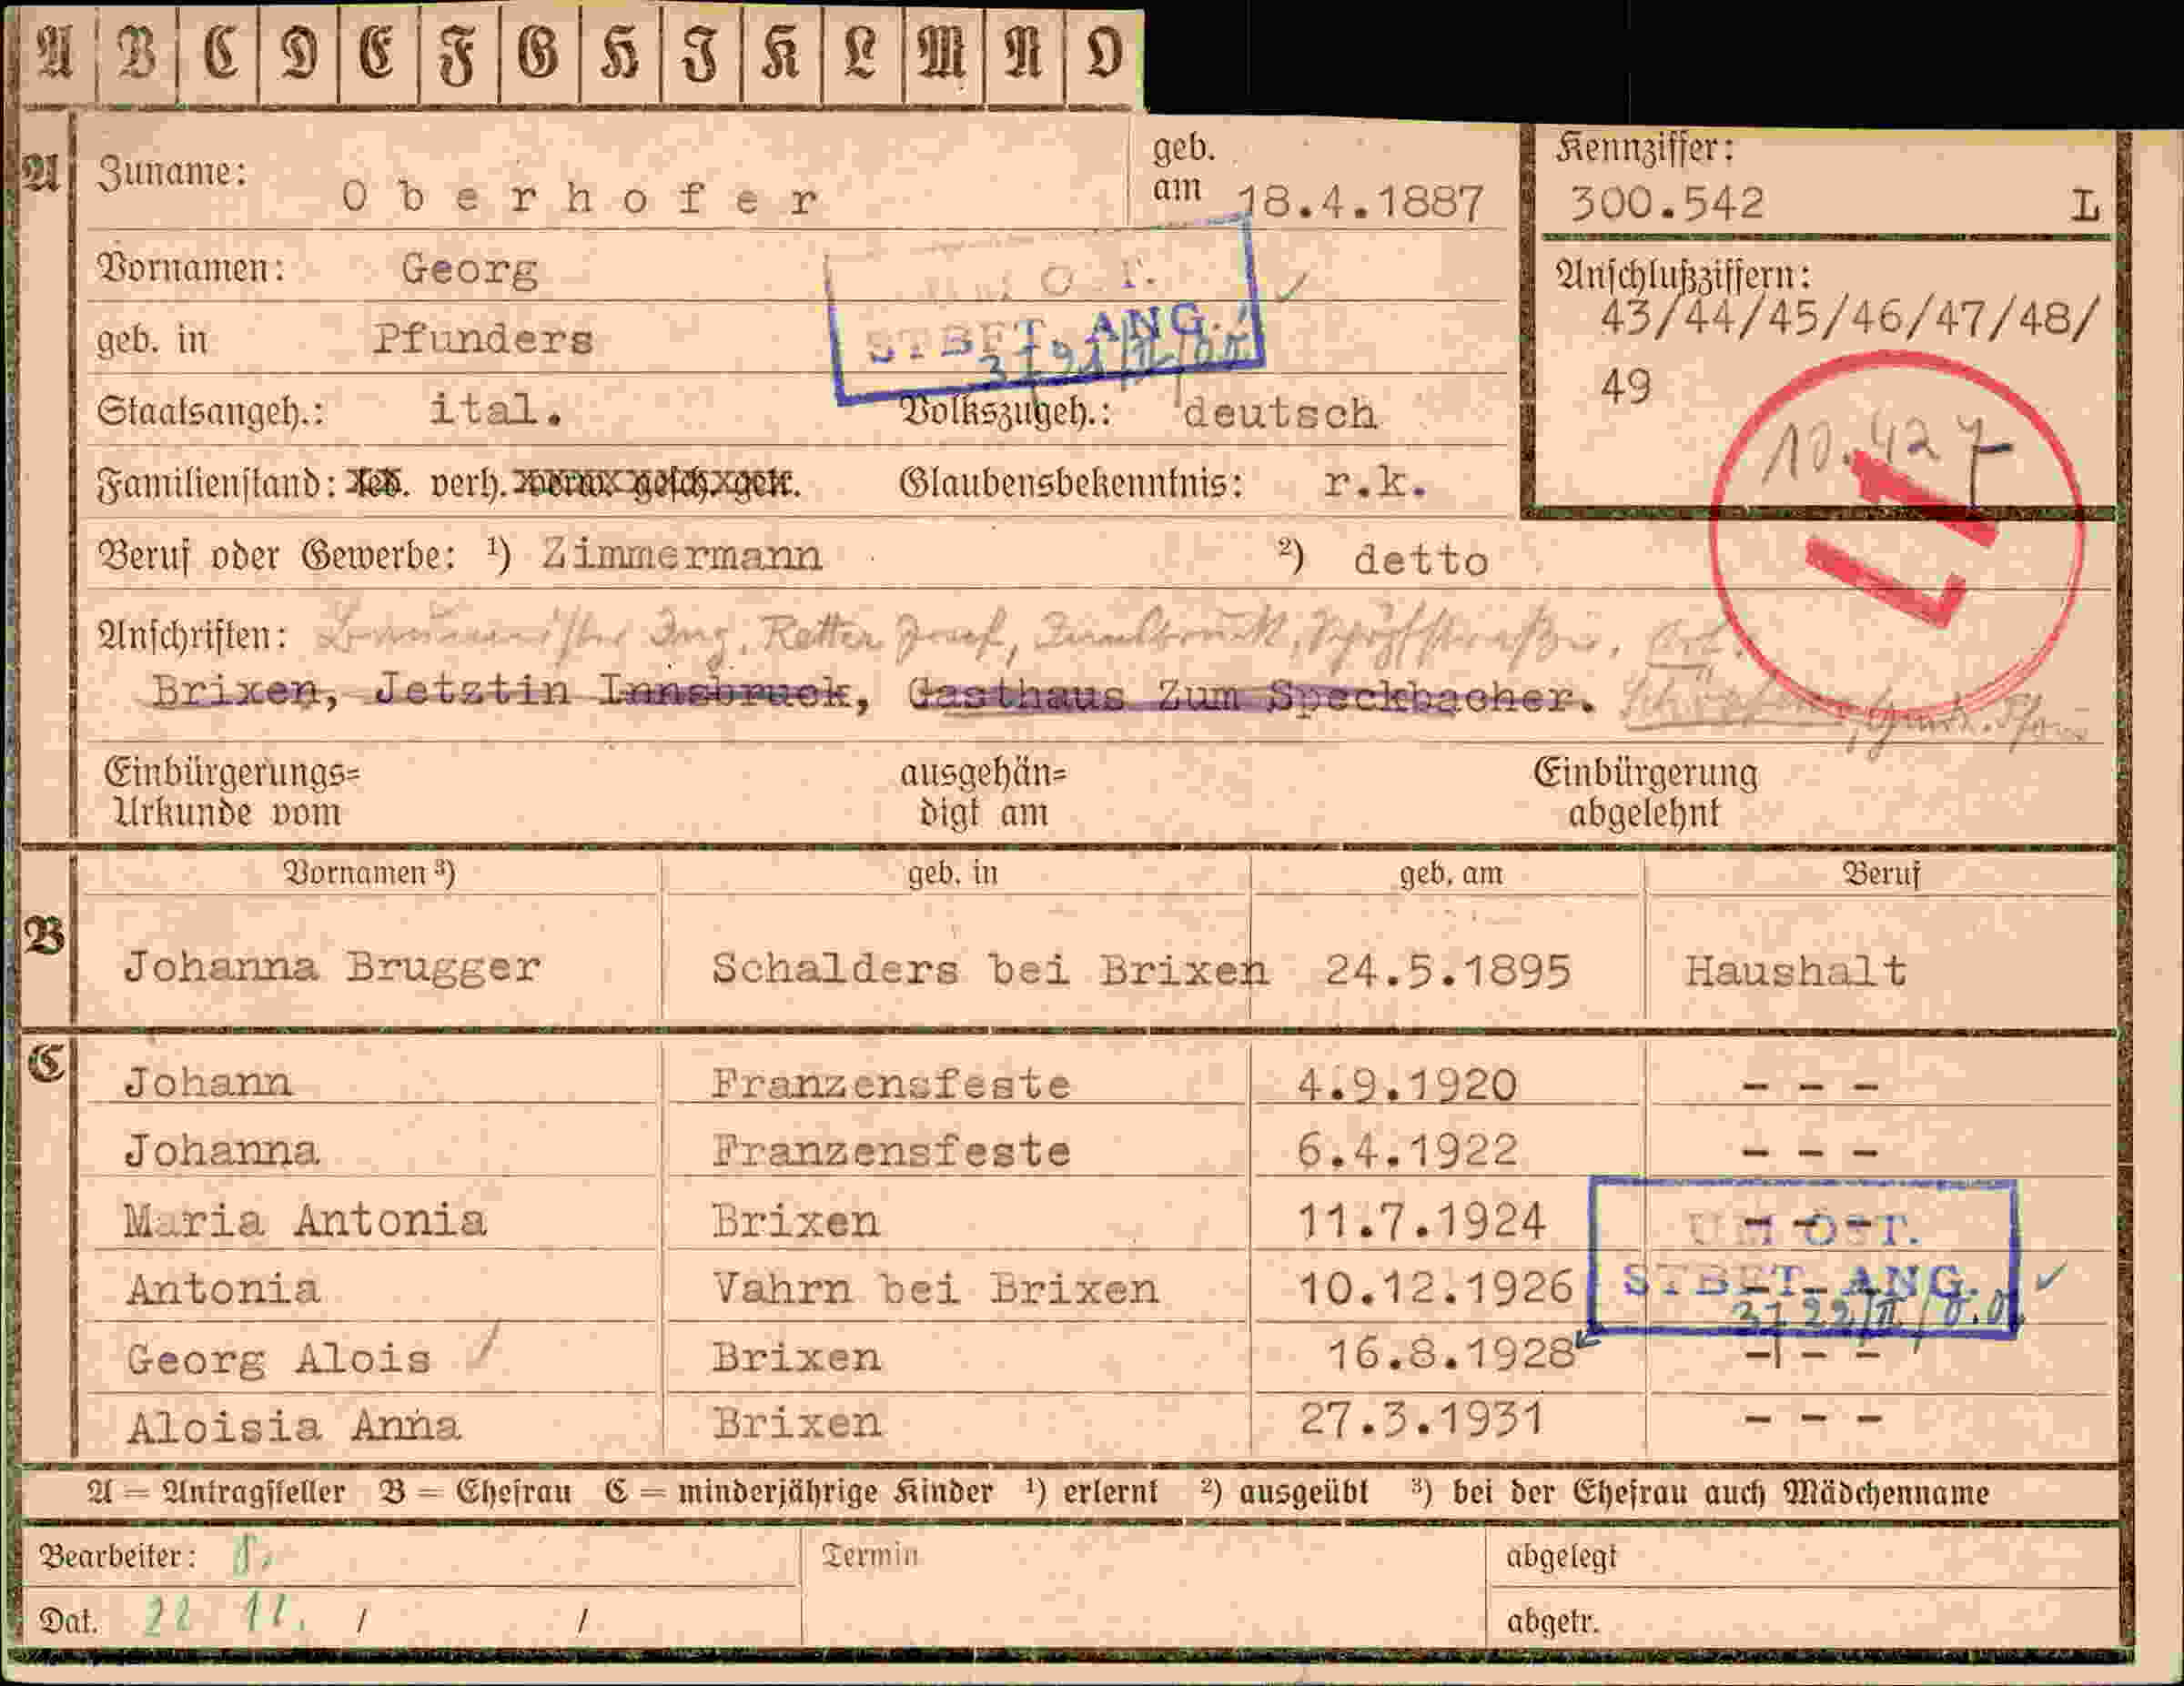 A B C D E F G H I K L M N O
A Zuname: Oberhofer geb. am 18.4.1887
Kennziffer: 300.542 L
Vornamen: Georg
geb. in Pfunders
STBET. ANG.
Anschlußziffern: 43/44/45/46/47/48/
49
10.427
Staatsangeh.: ital. Volkszugeh.: deutsch
Familienstand: led. verh. verw. gesch. getr. Glaubensbekenntnis: r.k.
Beruf oder Gewerbe: ¹) Zimmermann ²) detto
Anschriften: Baumeister Ing. Retter Josef, Innsbruck, Schöpfstraße
Brixen, Jetztin Innsbruck, Gasthaus Zum Speckbacher.
Einbürgerungs= ausgehän= Einbürgerung
Urkunde vom digt am abgelehnt
Vornamen ³) geb. in geb. am Beruf
B Johanna Brugger Schalders bei Brixen 24.5.1895 Haushalt
C Johann Franzensfeste 4.9.1920 - - -
Johanna Franzensfeste 6.4.1922 - - -
Maria Antonia Brixen 11.7.1924 - - -
UM OST.
Antonia Vahrn bei Brixen 10.12.1926 - - -
STBET. ANG.
Georg Alois Brixen 16.8.1928 - - -
Aloisia Anna Brixen 27.3.1931 - - -
A = Antragsteller B = Ehefrau C = minderjährige Kinder ¹) erlernt ²) ausgeübt ³) bei der Ehefrau auch Mädchenname
Bearbeiter: Termin abgelegt
Dat. 22 12. / / abgetr.